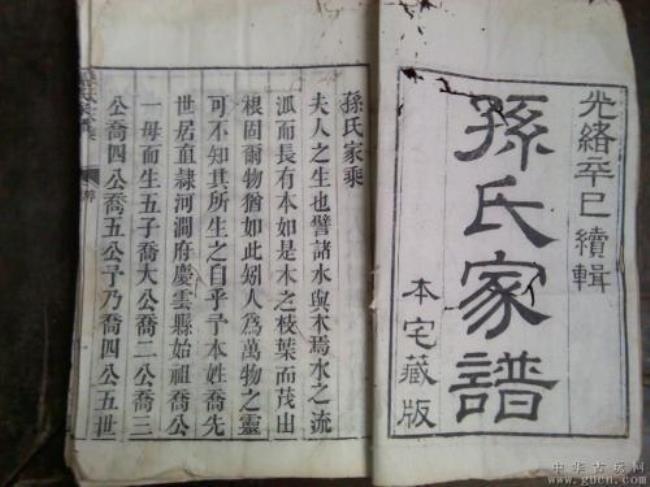 光緒辛巳續輯
孫氏家譜
本宅藏版
孫氏家乘
夫人之生也譬諸水與木焉水之流
派而長有本如是木之枝葉而茂出
根固爾物猶如此矧人為萬物之靈
可不知其所生之自乎予本姓喬先
世居直隸河澗府慶雲縣始祖喬公
一母而生五子喬大公喬二公喬三
公喬四公喬五公予乃喬四公五世
中华古玩网
www.gucn.com